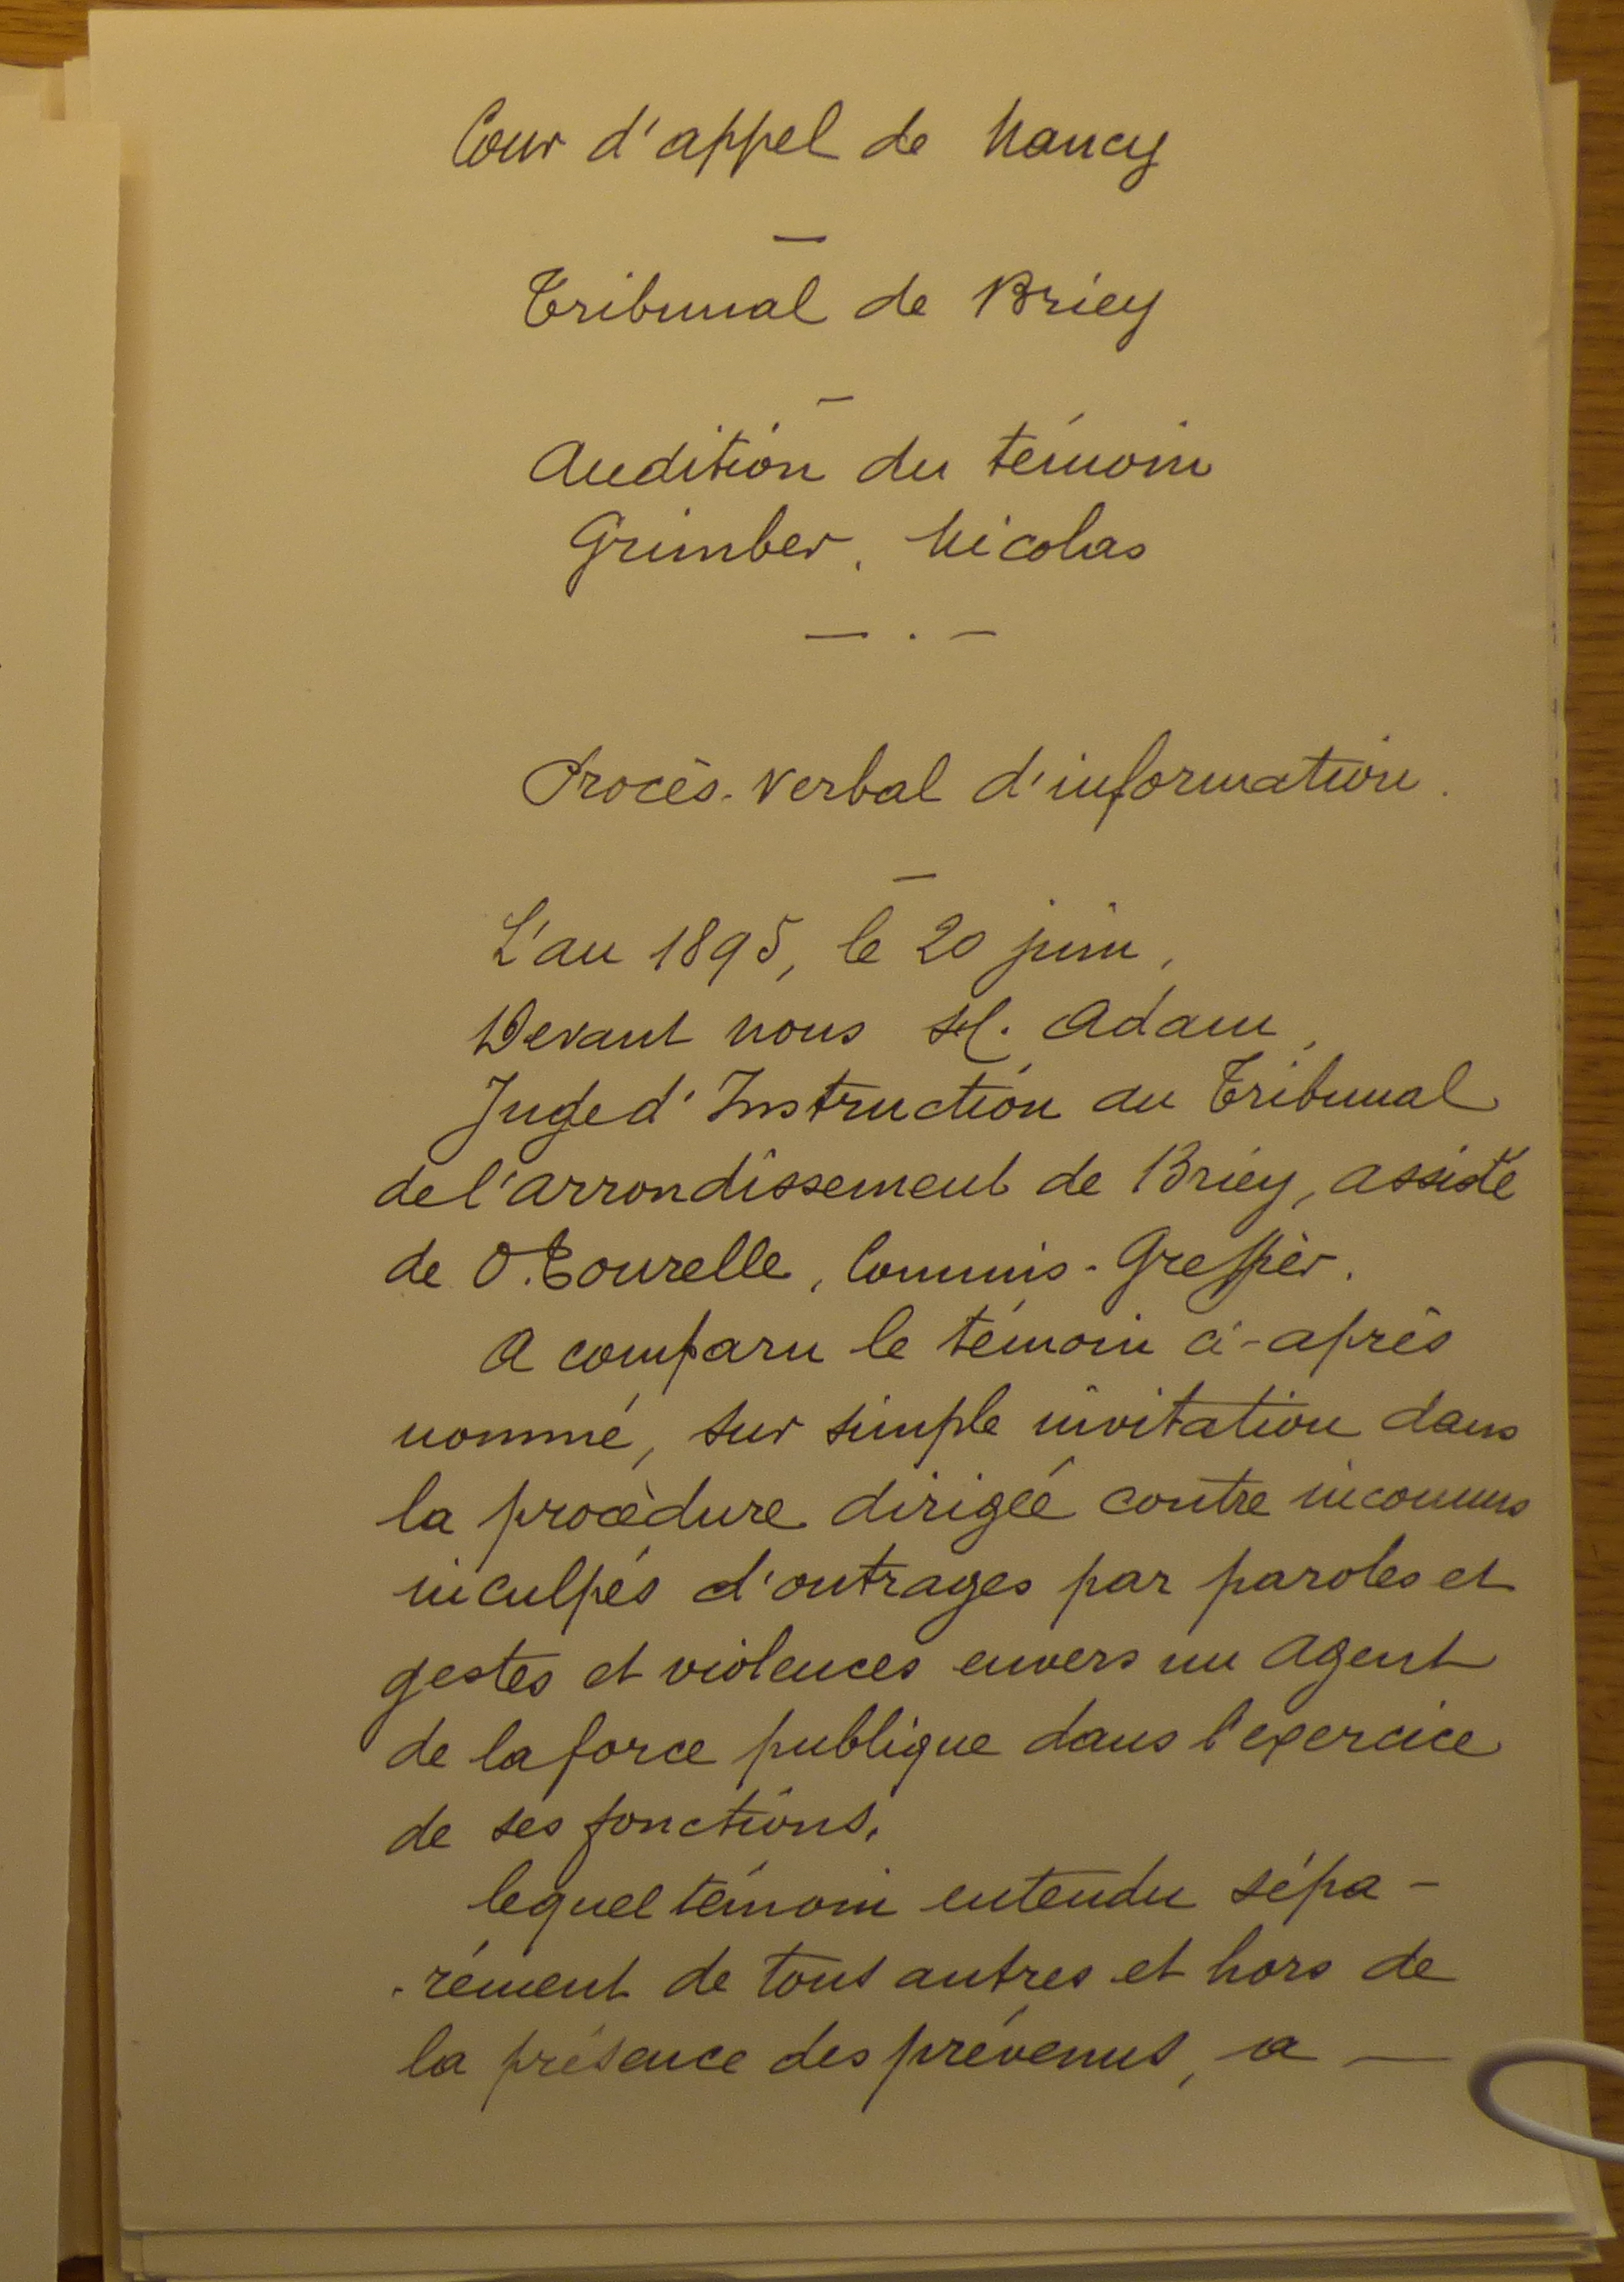 Cour d'appel de Nancy
—
Tribunal de Briey
—
Audition du témoin
Grimber, Nicolas
— . —
Procès-verbal d'information.
—
L'an 1895, le 20 juin,
Devant nous M. Adam,
Juge d'Instruction au Tribunal
de l'arrondissement de Briey, assisté
de O. Tourelle, Commis-Greffier.
A comparu le témoin ci-après
nommé, sur simple invitation dans
la procèdure dirigée contre inconnus
inculpés d'outrages par paroles et
gestes et violences envers un agent
de la force publique dans l'exercice
de ses fonctions,
lequel témoin entendu sépa-
-rément de tous autres et hors de
la présence des prévenus, a —